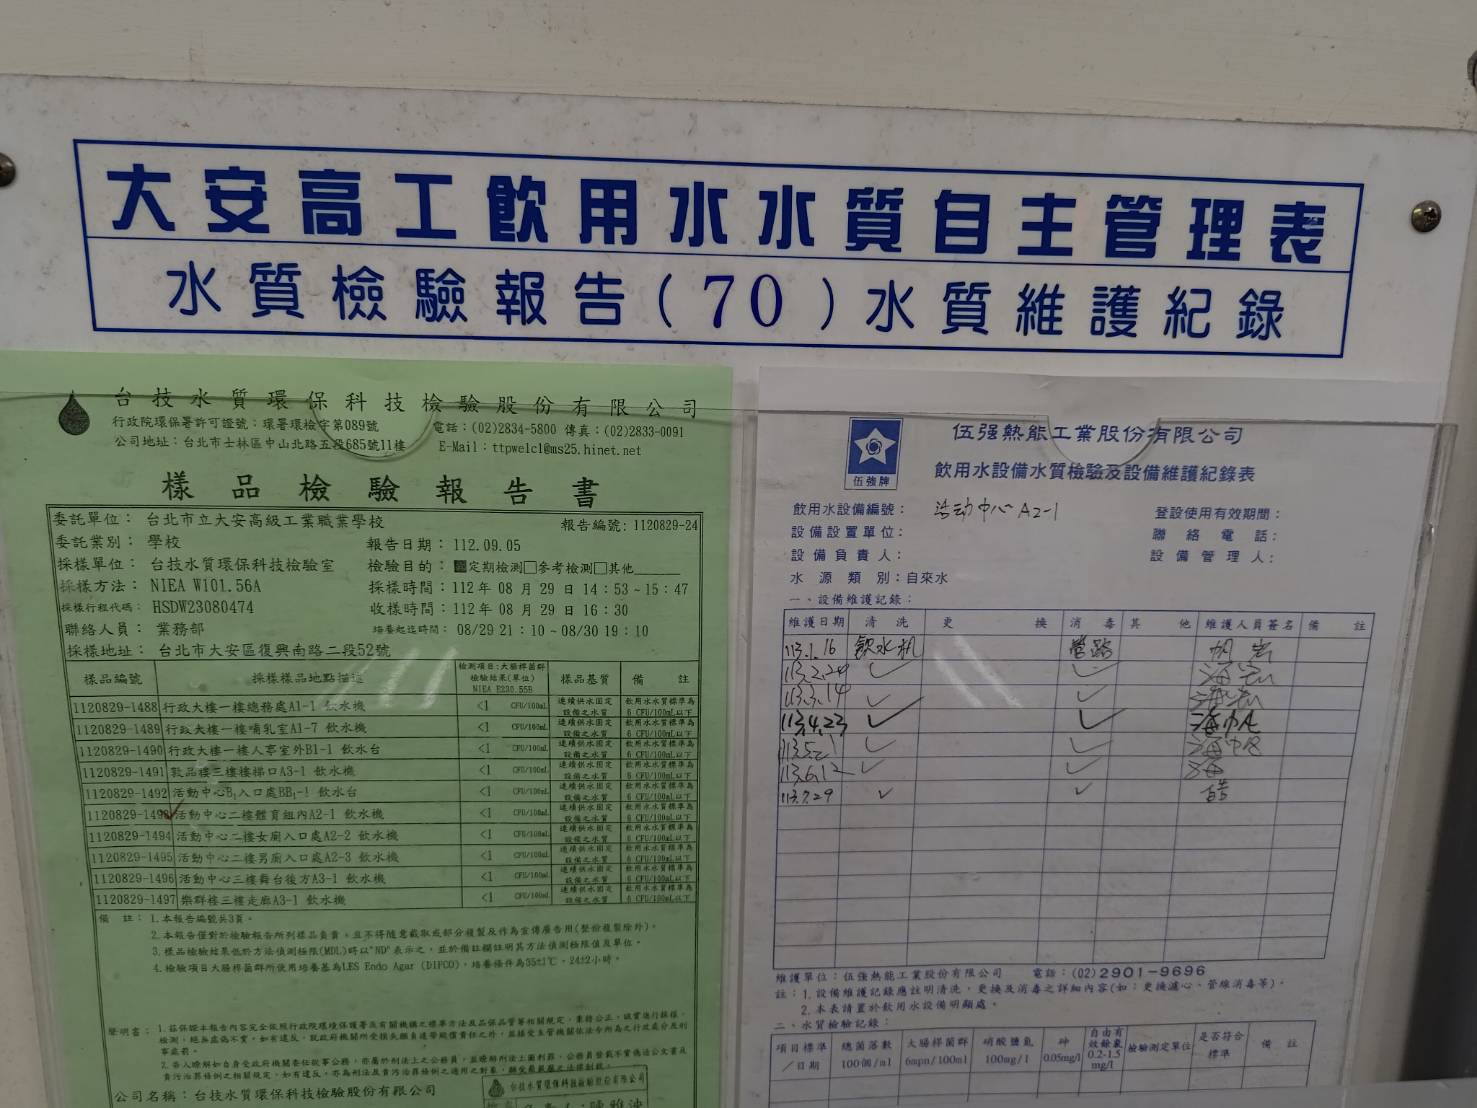 大安高工飲用水水質自主管理表
水質檢驗報告(70)水質維護紀錄
台技水質環保科技檢驗股份有限公司
行政院環保署許可證號：環署環檢字第089號
電話：(02)2834-5800 傳真：(02)2833-0091
公司地址：台北市士林區中山北路五段685號11樓
E-Mail：ttpwelcl@ms25.hinet.net
樣品檢驗報告書
委託單位： 台北市立大安高級工業職業學校
報告編號: 1120829-24
委託業別： 學校
報告日期：112.09.05
採樣單位： 台技水質環保科技檢驗室
檢驗目的：定期檢測□參考檢測□其他
採樣方法： NIEA W101.56A
採樣時間：112年 08 月 29 日 14：53～15：47
採樣行程代碼： HSDW23080474
收樣時間：112年 08 月 29 日 16：30
聯絡人員： 業務部
培養起迄時間： 08/29 21：10～08/30 19：10
採樣地址： 台北市大安區復興南路二段52號
樣品編號 採樣樣品地點描述 檢測項目:大腸桿菌群 檢驗結果(單位) NIEA E230.55B 樣品基質 備 註
1120829-1488 行政大樓一樓總務處A1-1 飲水機 <1 CFU/100mL 連續供水固定設備之水質 飲用水水質標準為 6 CFU/100mL以下
1120829-1489 行政大樓一樓哺乳室A1-7 飲水機 <1 CFU/100mL 連續供水固定設備之水質 飲用水水質標準為 6 CFU/100mL以下
1120829-1490 行政大樓一樓人事室外B1-1 飲水台 <1 CFU/100mL 連續供水固定設備之水質 飲用水水質標準為 6 CFU/100mL以下
1120829-1491 敦品樓三樓樓梯口A3-1 飲水機 <1 CFU/100mL 連續供水固定設備之水質 飲用水水質標準為 6 CFU/100mL以下
1120829-1492 活動中心B1入口處BB1-1 飲水台 <1 CFU/100mL 連續供水固定設備之水質 飲用水水質標準為 6 CFU/100mL以下
1120829-1493 活動中心二樓體育組內A2-1 飲水機 <1 CFU/100mL 連續供水固定設備之水質 飲用水水質標準為 6 CFU/100mL以下
1120829-1494 活動中心二樓女廁入口處A2-2 飲水機 <1 CFU/100mL 連續供水固定設備之水質 飲用水水質標準為 6 CFU/100mL以下
1120829-1495 活動中心二樓男廁入口處A2-3 飲水機 <1 CFU/100mL 連續供水固定設備之水質 飲用水水質標準為 6 CFU/100mL以下
1120829-1496 活動中心三樓舞台後方A3-1 飲水機 <1 CFU/100mL 連續供水固定設備之水質 飲用水水質標準為 6 CFU/100mL以下
1120829-1497 樂群樓三樓走廊A3-1 飲水機 <1 CFU/100mL 連續供水固定設備之水質 飲用水水質標準為 6 CFU/100mL以下
備 註：1.本報告編號共3頁。
2.本報告僅對於檢驗報告所列樣品負責，且不得隨意截取或部分複製及作為宣傳廣告用(整份複製除外)。
3.樣品檢驗結果低於方法偵測極限(MDL)時以"ND"表示之，並於備註欄註明其方法偵測極限值及單位。
4.檢驗項目大腸桿菌群所使用培養基為LES Endo Agar (DIFCO)，培養條件為35±1℃，24±2小時。
聲明書：
公司名稱：台技水質環保科技檢驗股份有限公司
台技水質環保科技檢驗股份有限公司
伍強牌
伍強熱能工業股份有限公司
飲用水設備水質檢驗及設備維護紀錄表
飲用水設備編號： 活动中心 A2-1
登設使用有效期間：
設備設置單位：
聯絡電話：
設備負責人：
設備管理人：
水源類別：自來水
一、設備維護記錄：
維護日期 清洗 更換 消毒 其他 維護人員簽名 備註
113.1.16 飲水机 管路
113.2.24 ✓ ✓
113.3.14 ✓ ✓
113.4.23 ✓ ✓
✓ ✓
113.6.12 ✓ ✓
113.7.29 ✓ ✓
維護單位：伍強熱能工業股份有限公司 電話：(02)2901-9696
註：1.設備維護記錄應註明清洗，更換及消毒之詳細內容(如：更換濾心、管線消毒等)。
2.本表請置於飲用水設備明顯處。
二、水質檢驗記錄：
項目標準／日期 總菌落數 100個/ml 大腸桿菌群 6mpn/100ml 硝酸鹽氮 100mg/l 砷 0.05mg/l 自由有效餘氯 0.2-1.5 mg/l 檢驗測定單位 是否符合標準 備註